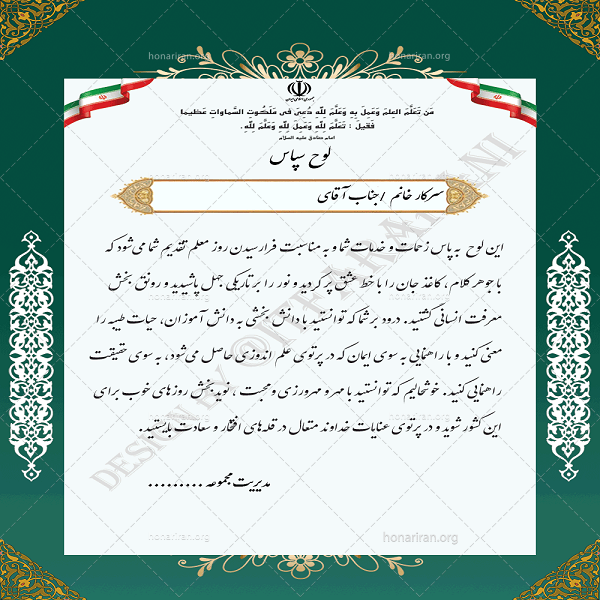 honariran.org
honariran.org
جمهوری اسلامی ایران
مَن تَعَلَّمَ العِلمَ وَعَمِلَ بِهِ وَعَلَّمَ لِلّهِ دُعِیَ فی مَلَکوتِ السَّماواتِ عَظیما
فَقیلَ : تَعَلَّمَ لِلّهِ وَعَمِلَ لِلّهِ وَعَلَّمَ لِلّهِ.
امام صادق علیه السلام
لوح سپاس
سرکار خانم / جناب آقای
این لوح به پاس زحمات و خدمات شما و به مناسبت فرارسیدن روز معلم تقدیم شما می‌شود که
با جوهر کلام، کاغذ جان را با خط عشق پر کردید و نور را بر تاریکی جهل پاشیدید و رونق بخش
معرفت انسانی گشتید. درود بر شما که توانستید با دانش بخشی به دانش آموزان، حیات طیبه را
معنی کنید و با راهنمایی به سوی ایمان که در پرتوی علم اندوزی حاصل می‌شود، به سوی حقیقت
راهنمایی کنید. خوشحالیم که توانستید با مهر و مهرورزی و محبت، نوید بخش روزهای خوب برای
این کشور شوید و در پرتوی عنایات خداوند متعال در قله‌های افتخار و سعادت بایستید.
مدیریت مجموعه .........
honariran.org
honariran.org